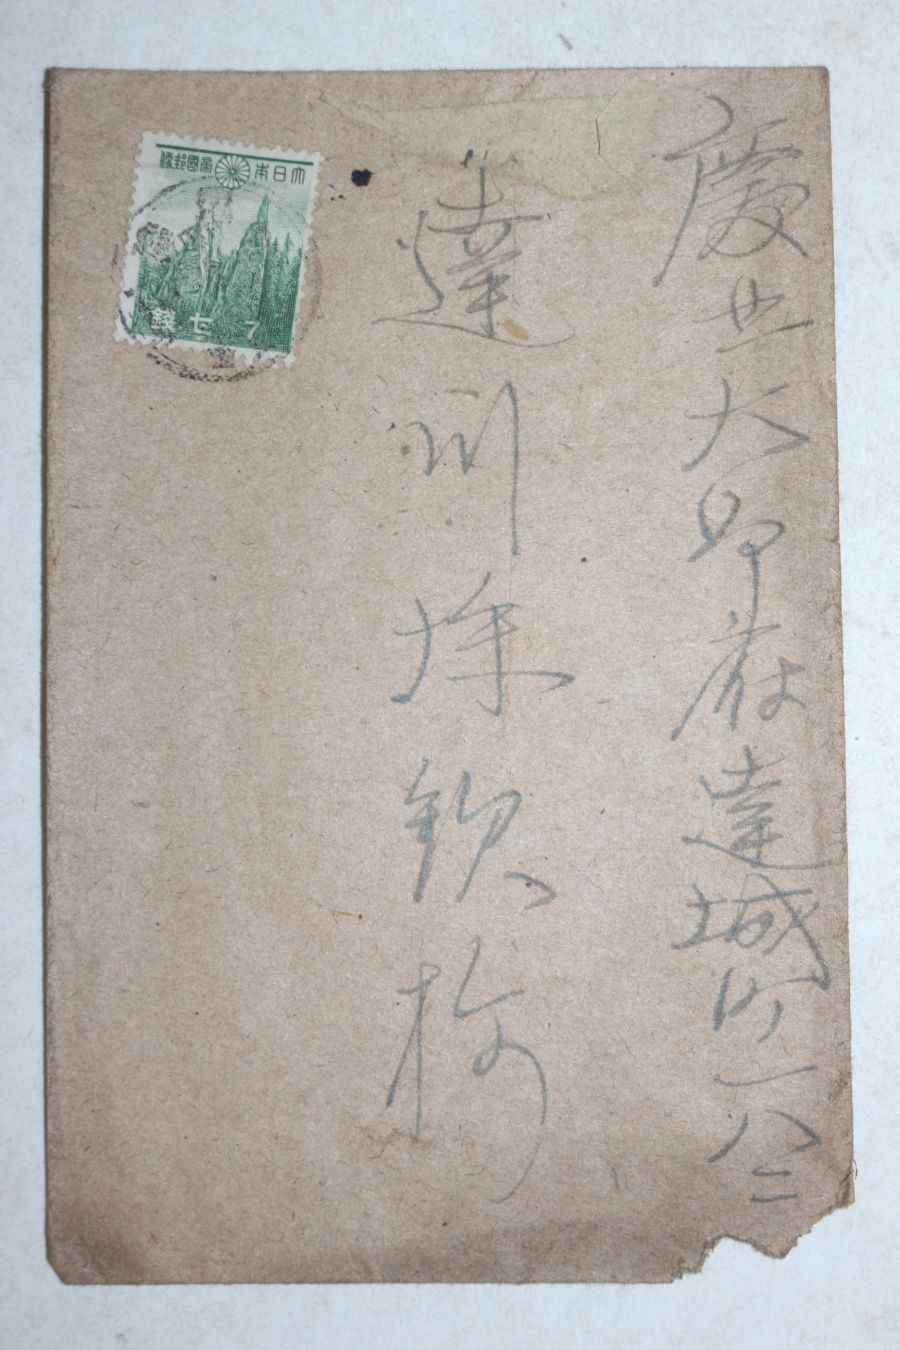 慶北大邱府達城町一八二
達川徐欽
大日本帝國郵便
七錢
7